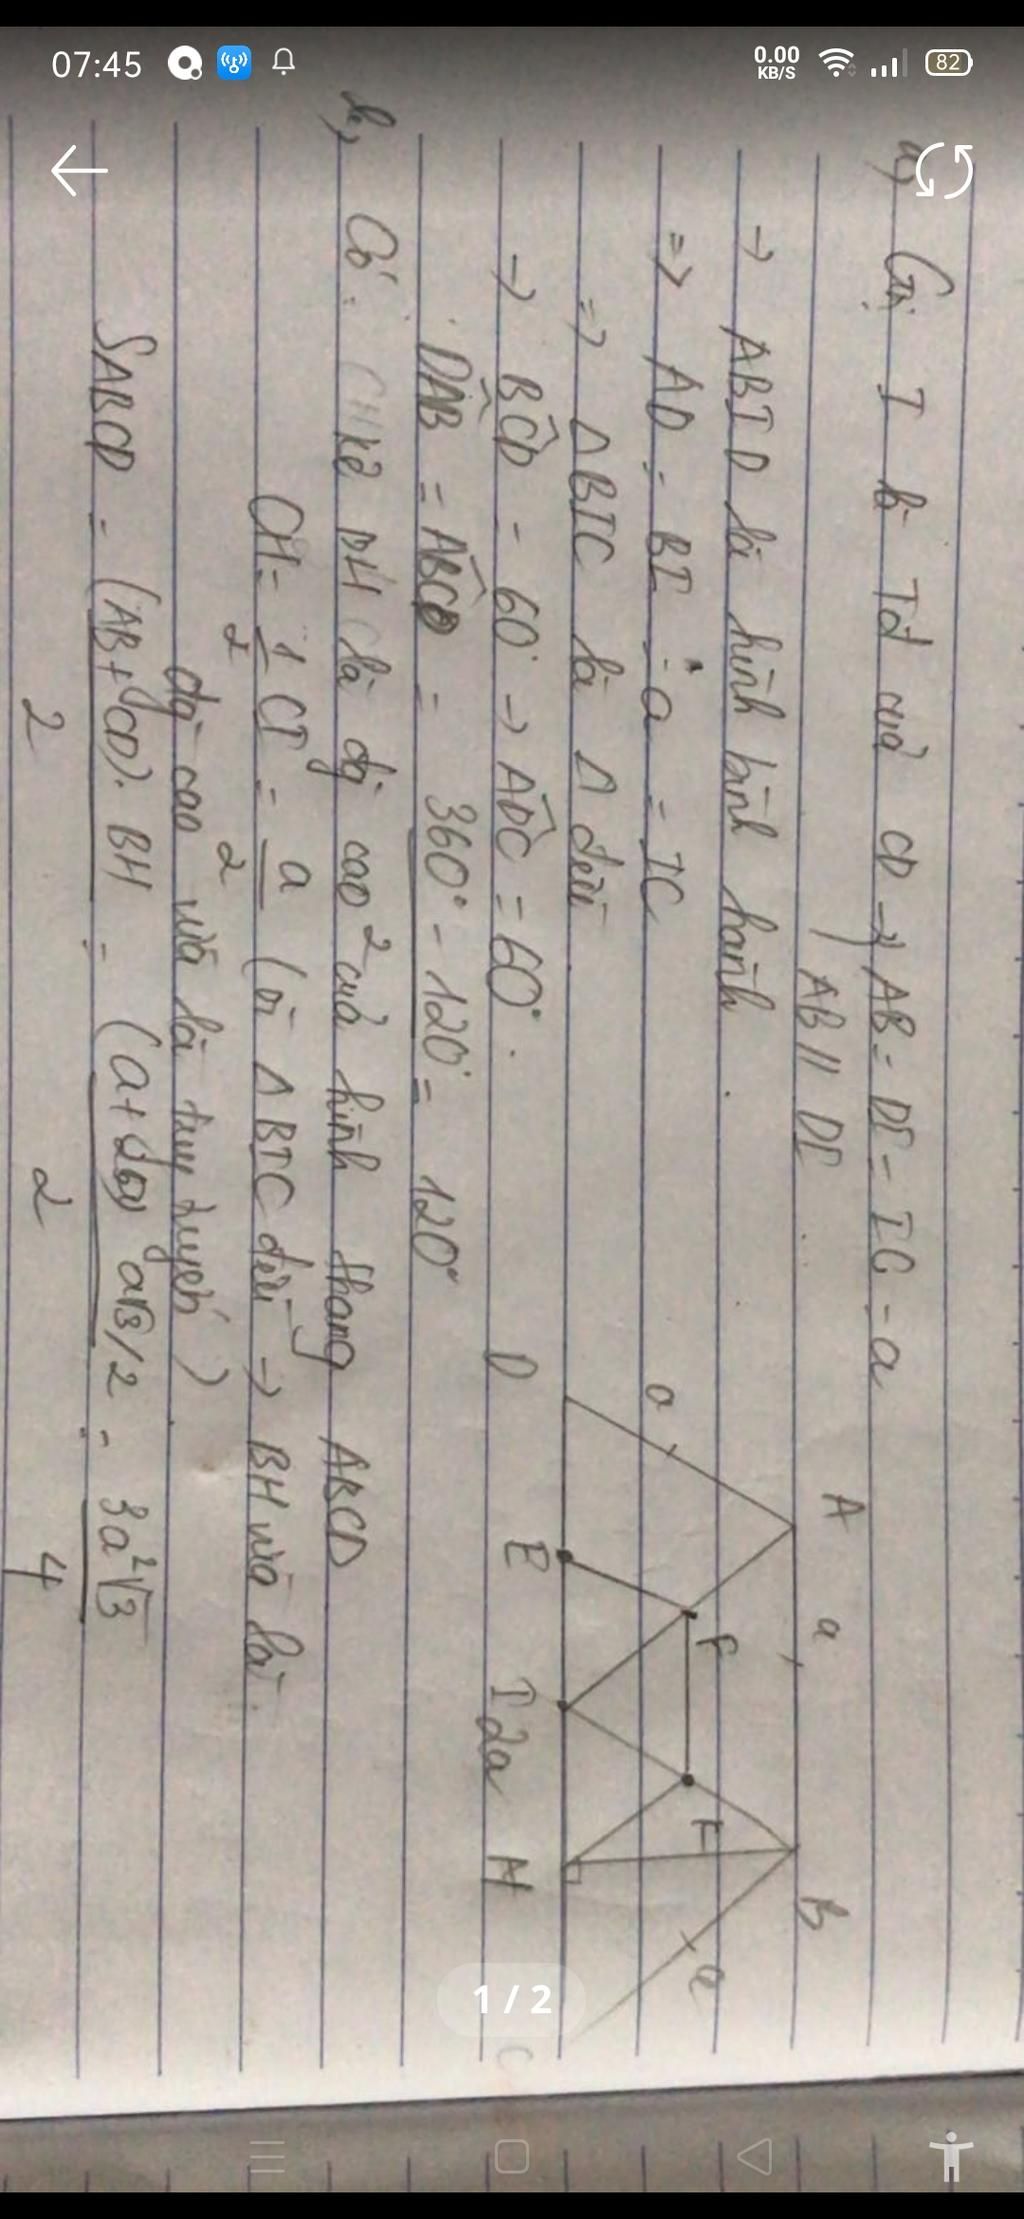 07:45
0.00 KB/S
82
a) Gọi I là Tđ của CD → AB = DI = IC = a
AB // DI
→ ABID là hình bình hành.
=> AD = BI = a = IC
=> Δ BIC là Δ đều
→ BCD = 60° → ADC = 60°.
DAB = ABCD = 360° - 120° = 120°
2
b, Có: CH kẻ BH là đg cao của hình thang ABCD
CH = 1 CI = a (vì Δ BIC đều → BH vừa là
2 2
đg cao vừa là trung tuyến)
SABCD = (AB + CD). BH = (a + 2a) a√3/2 = 3a²√3
2 2 4
A a B
a F F a
D E I 2a H C
1 / 2